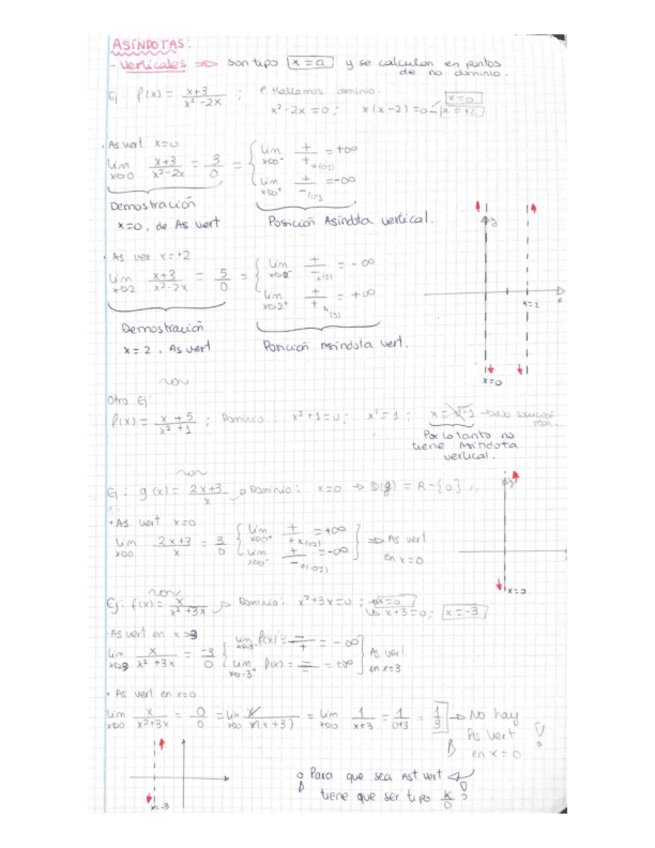 ASÍNDOTAS:
- Verticales => son tipo x = a y se calculan en puntos
de no dominio.
Ej f(x) = x+3 / x²-2x ; Hallamos dominio.
x²-2x = 0 ; x(x-2) = 0 x=0 x=+2
· As vert x=0
lim x→0 x+3 / x²-2x = 3/0 = { lim x→0⁻ +/+ = +∞
lim x→0⁺ +/- = -∞
Demostración
x=0, de As vert
Posición Asíndota vertical.
· As ver x=+2
lim x→2 x+3 / x²-2x = 5/0 = { lim x→2⁻ +/- = -∞
lim x→2⁺ +/+ = +∞
Demostración
x = 2, As vert
Posición Asíndota vert.
y
x
x=2
x=0
Otro Ej
f(x) = x+5 / x²+1 ; Dominio: x²+1=0 ; x²=1 ; x=√-1 → No solución
real.
Por lo tanto no
tiene Asíndota
vertical.
Ej: g(x) = 2x+3 / x → Dominio: x=0 → D(g) = R-{0}
· As vert x=0
lim x→0 2x+3 / x = 3/0 { lim x→0⁺ +/+ = +∞
lim x→0⁻ +/- = -∞
=> As vert
en x=0
y
x=0
Ej: f(x) = x / x²+3x → Dominio: x²+3x=0 ; x=0
x+3=0 ; x=-3
· As vert en x=-3
lim x→-3 x / x²+3x = -3/0 { lim f(x) = -/+ = -∞
lim x→-3⁺ f(x) = -/- = +∞
As vert
en x=3
· As vert en x=0
lim x→0 x / x²+3x = 0/0 = lim x→0 x / x(x+3) = lim x→0 1 / x+3 = 1 / 0+3 = 1/3 → No hay
As vert
en x=0
x=-3
Para que sea Ast vert
tiene que ser tipo k/0